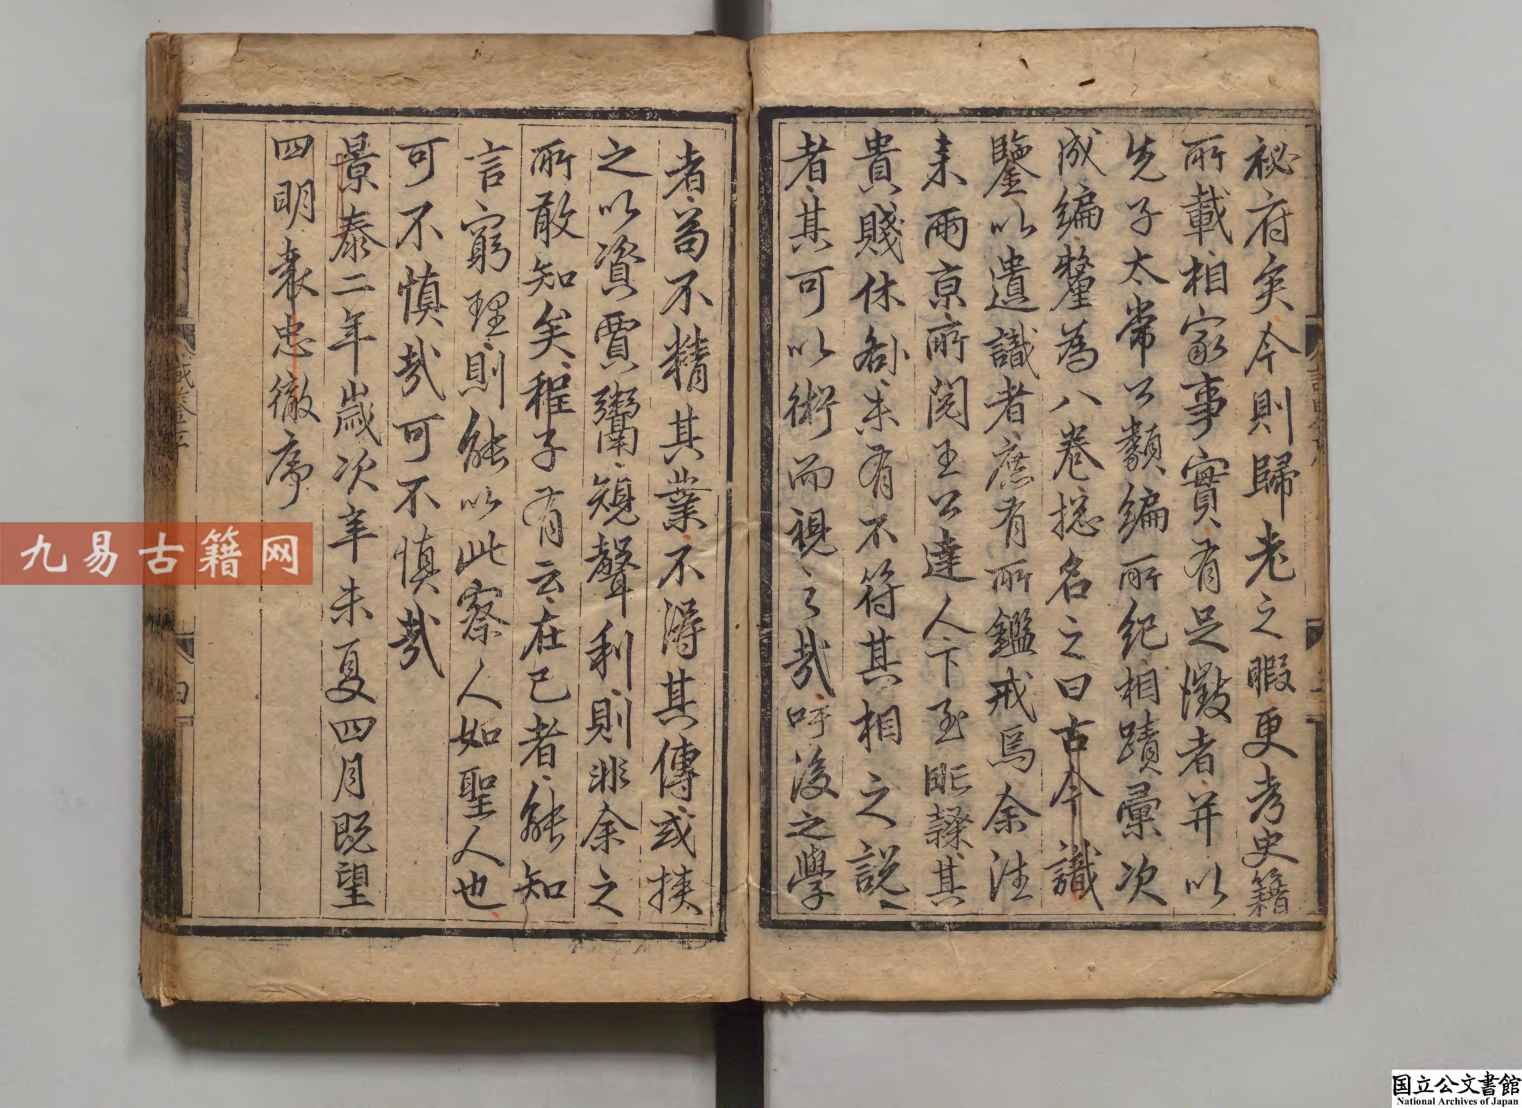 祕府矣今則歸老之暇更考史籍
所載相家事實有足徵者并以
先子太常公類編所紀相蹟彙次
成編釐為八卷揔名之曰古今識
鑒以遺識者庶有所鑑戒焉余往
來兩京所閱王公達人下至甿隸其
貴賤休咎未有不符其相之說
者其可以術而視之哉吁後之學
者苟不精其業不得其傳或挟
之以資賈鬻覬聲利則非余之
所敢知矣程子有云在已者能知
言窮理則能以此察人如聖人也
可不慎哉可不慎哉
景泰二年歲次辛未夏四月既望
四明袁忠徹序
四
九易古籍网
国立公文書館
National Archives of Japan